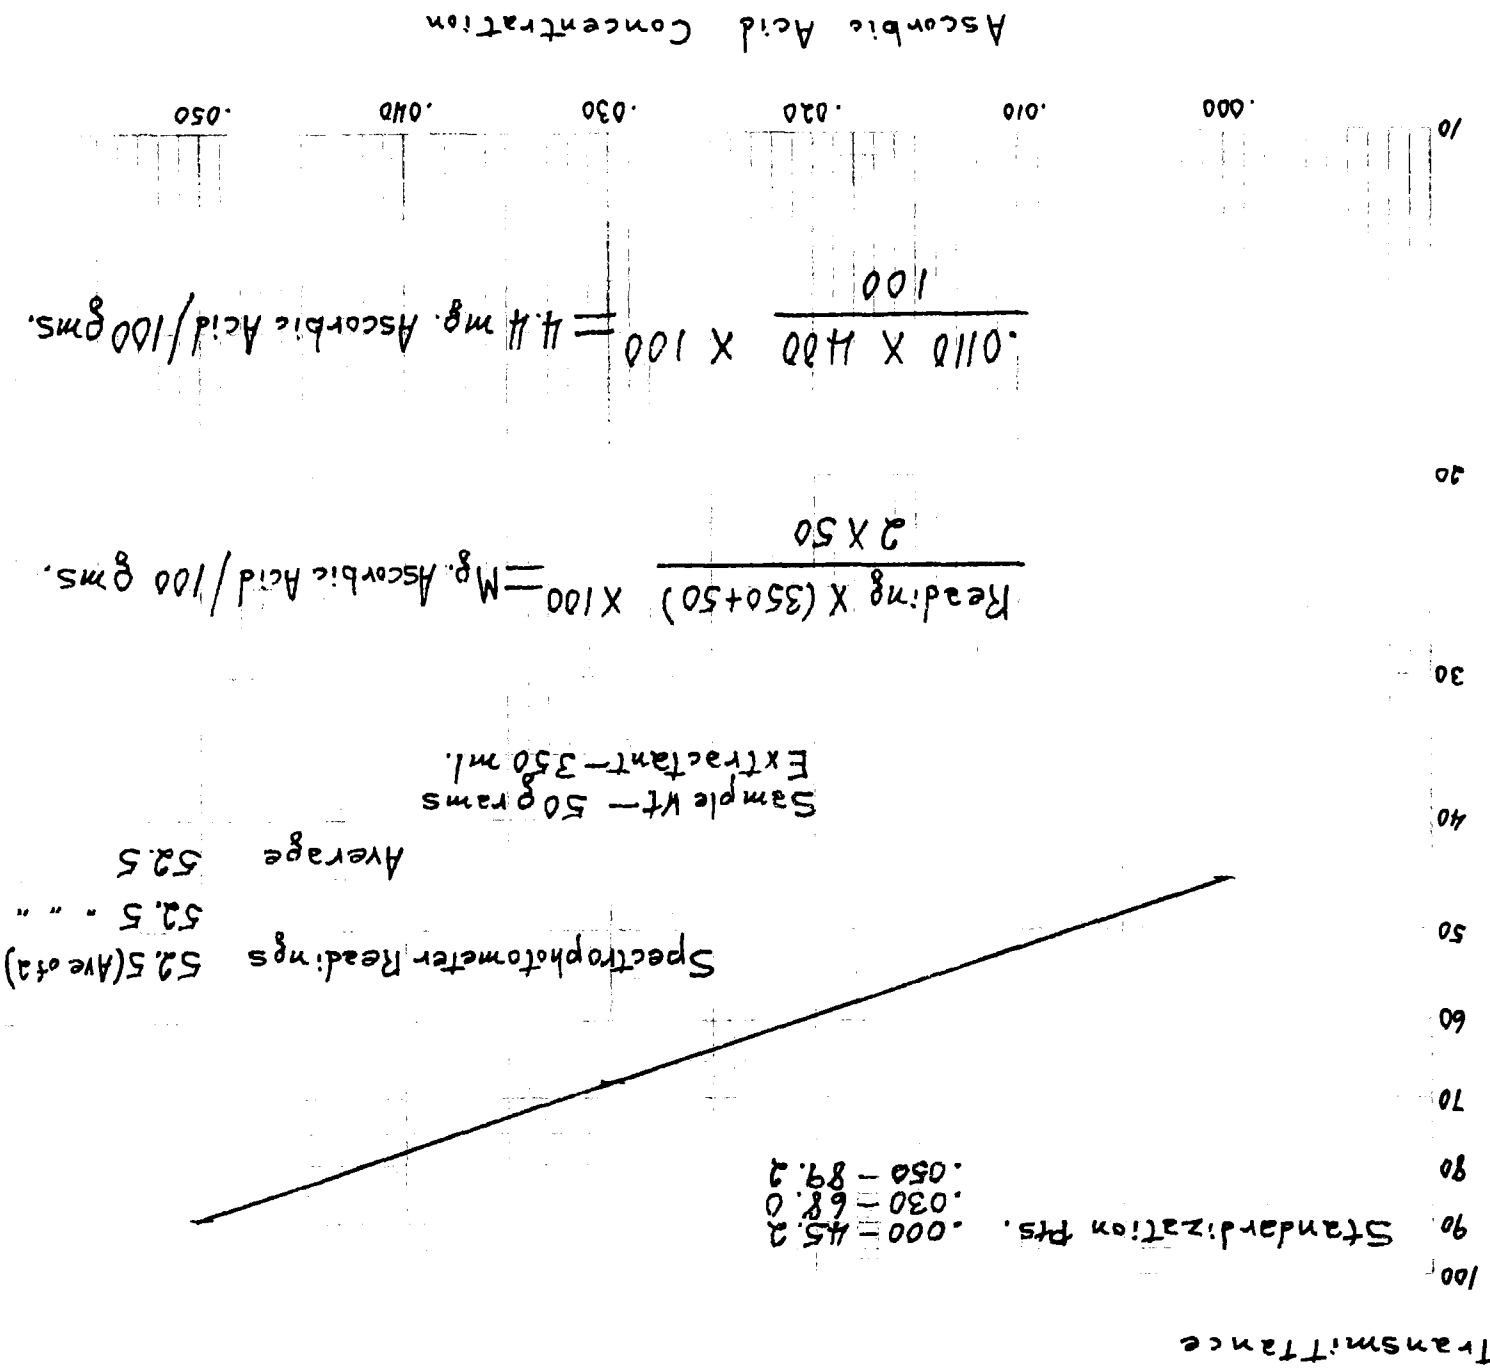 Transmittance
100
90
80
70
60
50
40
30
20
10
Standardization Pts. .000 – 45.2
.030 – 68.0
.050 – 89.2
Spectrophotometer Readings 52.5 (Ave of 2)
52.5 " "
Average 52.5
Sample Wt – 50 grams
Extractant – 350 ml.
Reading X (350+50)
2 X 50
X 100 = Mg. Ascorbic Acid / 100 gms.
.0110 X 400
100
X 100 = 4.4 mg. Ascorbic Acid / 100 gms.
.000 .010 .020 .030 .040 .050
Ascorbic Acid Concentration